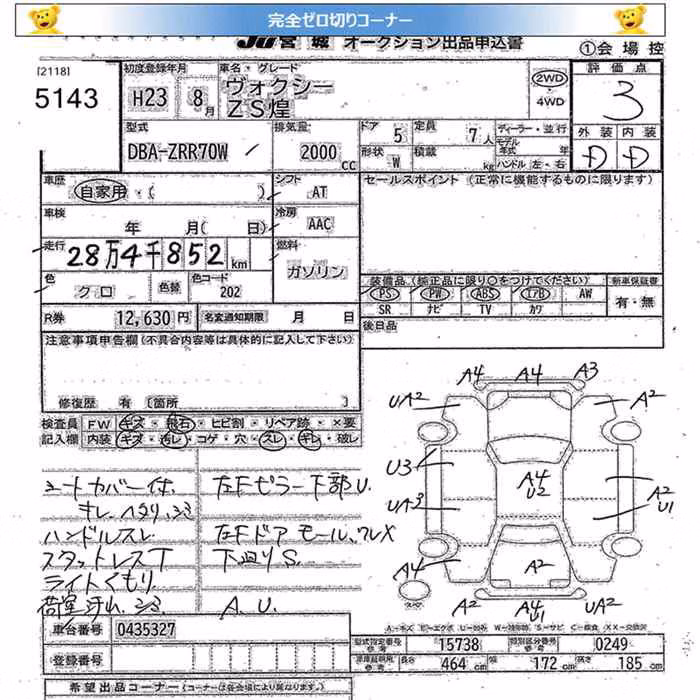 完全ゼロ切りコーナー
JU宮城 オークション出品申込書
①会場控
[2118]
5143
初度登録年月
H23 8月
車名・グレード
ヴォクシー
ZS煌
2WD
4WD
評価点
3
外装 内装
D D
型式
DBA-ZRR70W
排気量
2000cc
ドア 5
定員 7人
形状 W
積載 kg
ディーラー・並行
モデル年式 年
ハンドル 左・右
車歴
自家用・( )
シフト
AT
セールスポイント (正常に機能するものに限ります)
車検
年 月( 日)
冷房
AAC
走行
28万4千852km
燃料
ガソリン
色
クロ
色替
色コード
202
装備品(純正品に限り○をつけてください)
PS PW ABS エアB AW
SR ナビ TV カワ
新車保証書
有・無
R券 12,630円
名変通知期限 月 日
後日品
注意事項申告欄(不具合内容等は具体的に記入して下さい)
修復歴 有 〔箇所 〕
検査員 FW キズ・飛石・ヒビ割・リペア跡・×要
記入欄 内装 キズ・汚レ・コゲ・穴・スレ・キレ・破レ
シートカバー付.
キレ.ヘタリ.シミ
ハンドルスレ
スタットレスT
ライトくもり.
荷室汚れ.シミ
左Fピラー下部U.
左Fドアモール.ワレX
下廻りS.
A.U.
A4 A4 A3
UA2 A2
U3
A4
U2
UA3 A2
U1
A4 A2
A2 A4 UA2
U1
A-キズ E-エクボ U-凹み W-補修跡 S-サビ C-腐食 XX-交換済
車台番号 0435327
登録番号
型式指定番号 参考 15738
類別区分番号 参考 0249
車庫証明用 参考 長さ 464cm 幅 172cm 高さ 185cm
希望出品コーナー(コーナーは各会場により異なります)